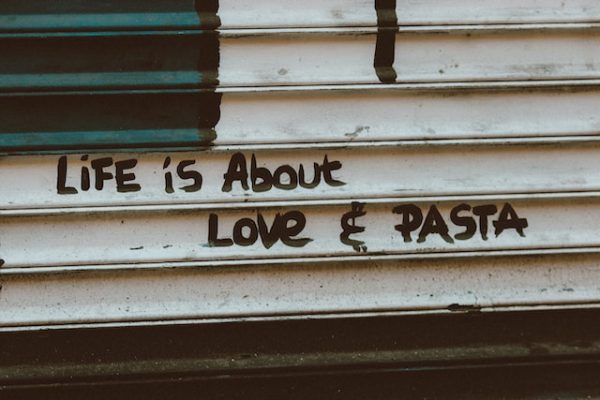 LiFE iS ABout
LOVE & PASTA